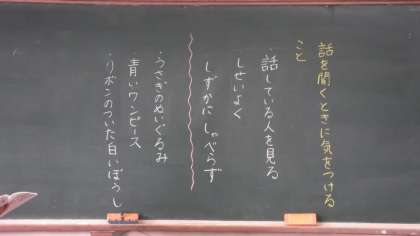 話を聞くときに気をつける
こと
・話している人を見る
しせいよく
しずかに しゃべらず
・うさぎのぬいぐるみ
・青いワンピース
・リボンのついた白いぼうし